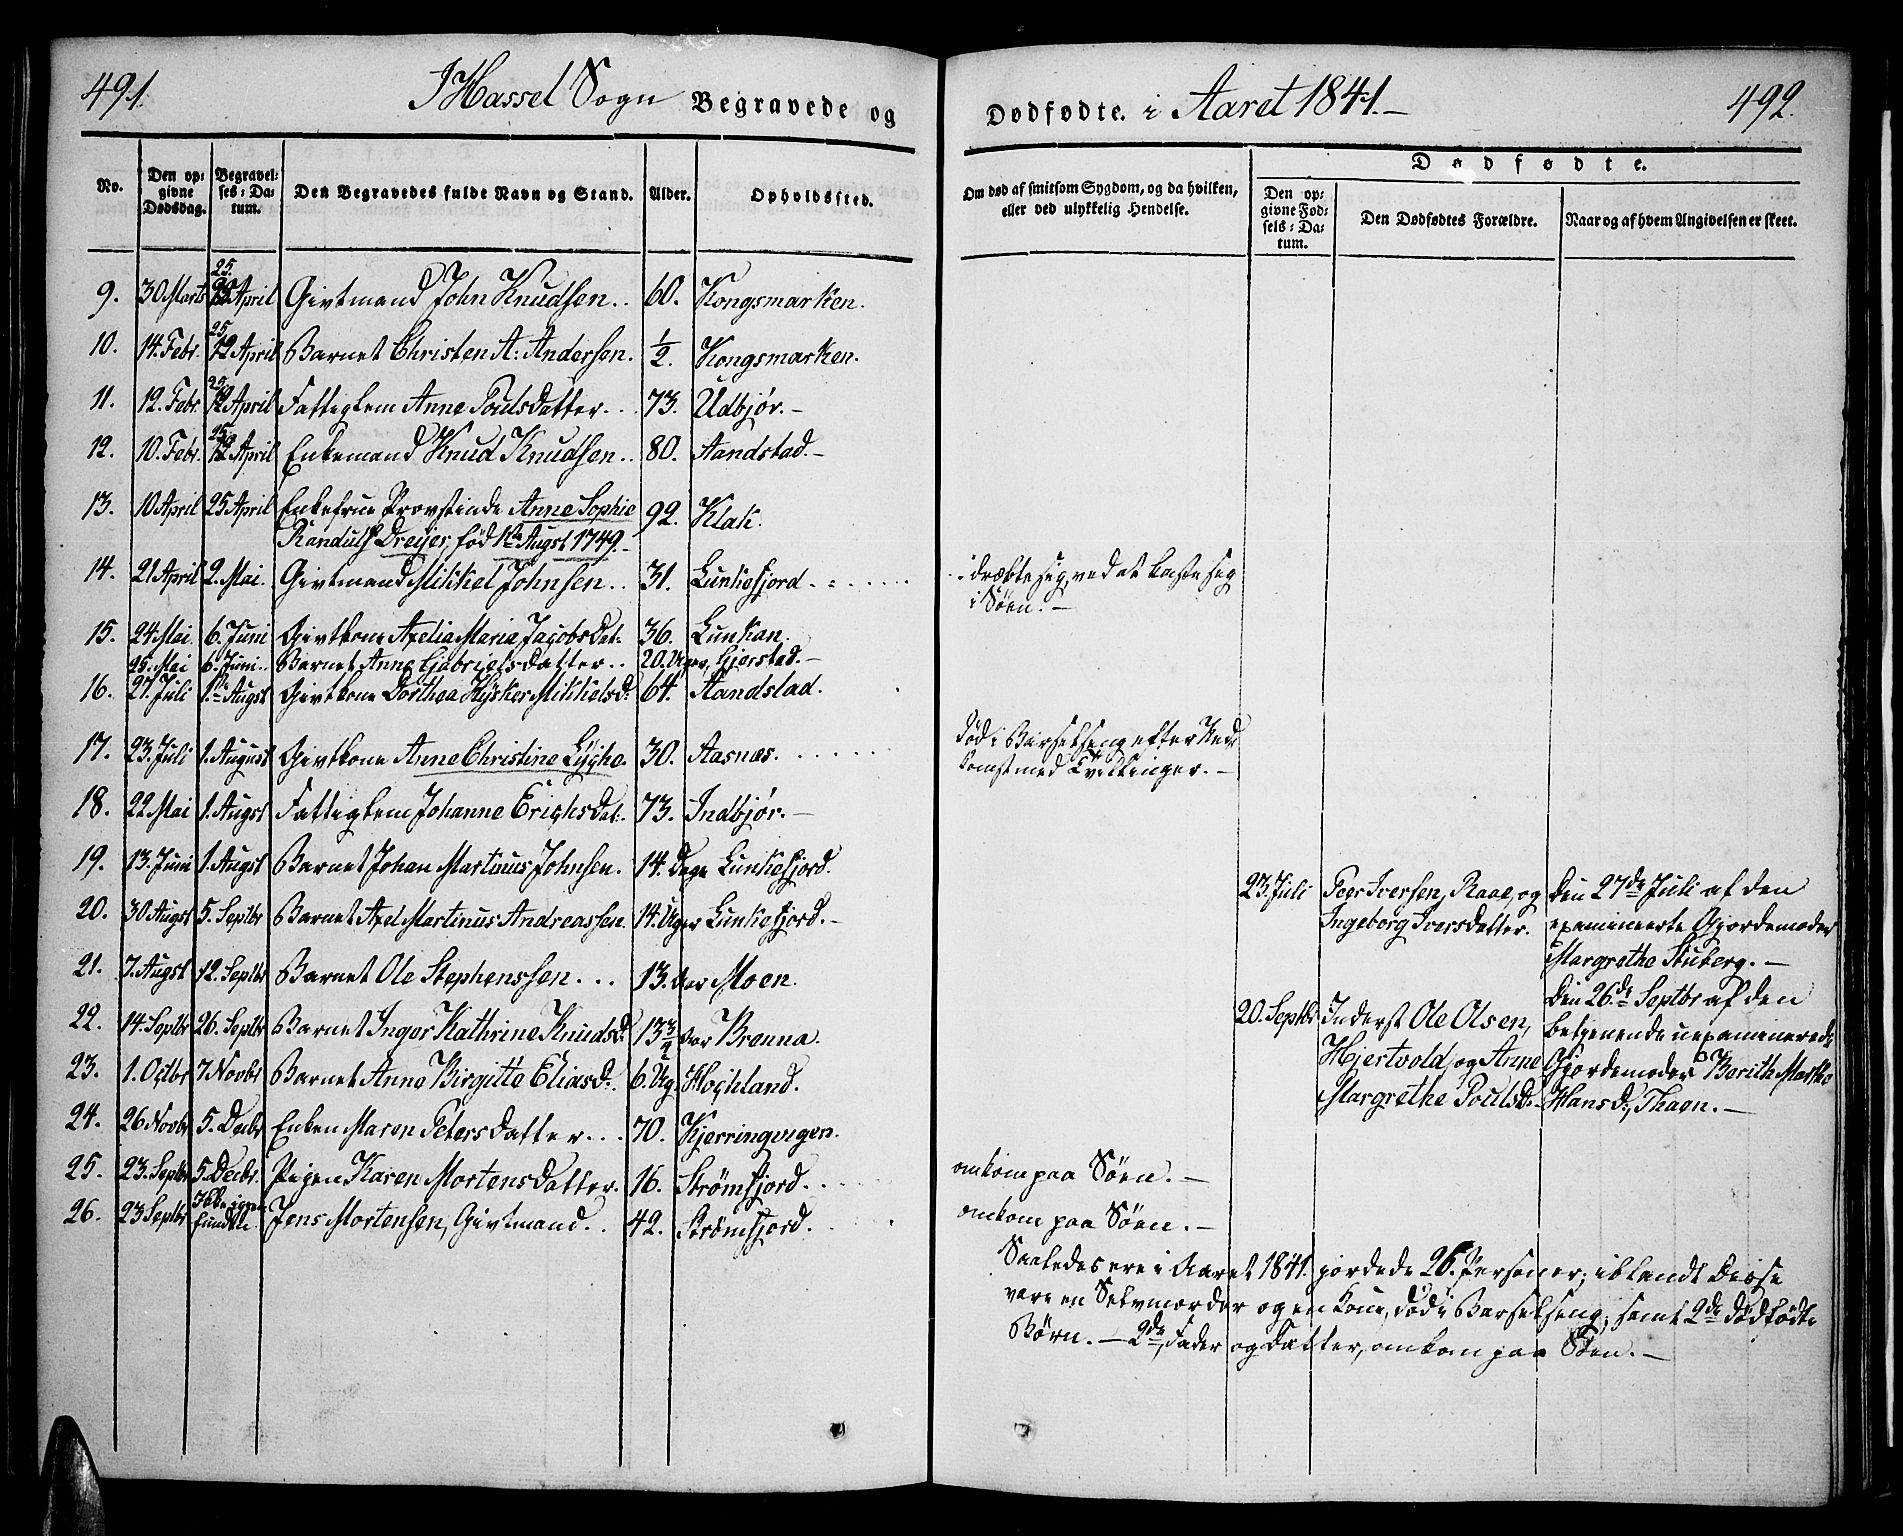 491. I Hassel Sogn Begravede og
Dødfødte. i Aaret 1841.— 492.
No. Den opgivne Dødsdag. Begravelses-Datum. Den Begravedes fulde Navn og Stand. Alder. Opholdssted.
Om død af smitsom Sygdom, og da hvilken, eller ved ulykkelig Hendelse.
Dødfødte.
Den opgivne Fødsels-Datum. Den Dødfødtes Forældre. Naar og af hvem Angivelsen er skeet.
9. 30 Marts 25 April Givtmand John Knudsen.. 60. Kongsmarken.
10. 14. Febr. 25 April Barnet Christen A: Andersen. ½. Kongsmarken.
11. 12. Febr. 25 April Fattiglem Anne Poulsdatter... 73. Udbjør.—
12. 10. Febr. 25 April Enkemand Knud Knudsen.. 80. Aandstad.—
13. 10 April 25 April Enkefrue Provstinde Anne Sophie 92. Klak.
Randulf Dreyer, fød Augst 1749.—
14. 21 April 2. Mai. Givtmand Mikkel Johnsen.. 31. Lunkefjord. dræbte sig, ved at kaste sig
i Søen.—
15. 24 Mai. 6. Juni Givtkone Axelia Maria Jacobsdat: 36. Lunkan.
25. Mai 6. Juni.. Barnet Anne Gabrielsdatter.. 20. Uger, Gjerstad.—
16. 27. Juli 1. Augst Givtkone Dorthea Hysker Mikkelsd: 64. Aandstad.
17. 23. Juli 1. August Givtkone Anne Christine Lyche. 30. Aasnæs. død i Barselseng efter Ned-
komst med Tvillinger.—
18. 22 Mai 1. Augst Fattiglem Johanne Erichsdat:. 73. Indbjør.—
19. 13. Juni 1. Augst Barnet Johan Martinus Johnsen. 14. Dage Lunkefjord.
20. 30 Augst 5. Septbr Barnet Axel Martinus Andreassen. 14. Uger Lunkefjord.—
21. 7. Augst 12. Septbr Barnet Ole Stephenssen... 13. Aar Moen.
22. 14. Septbr 26. Septbr Barnet Inger Kathrine Knudsd: 13¾ Aar Brenna.
23. 1. Octbr 7 Novbr Barnet Anne Birgitte Eliasd:. 6. Ug. Hochland.
24. 26 Novbr 5. Decbr Enken Maren Petersdatter... 70. Kjerringvigen.
25. 23. Septbr 5. Decbr. Pigen Karen Mortensdatter. 16. Strømfjord. omkom paa Søen.—
26. 23 Septbr Ikke igjen funden Jens Mortensen, Givtmand.. 42. Strømfjord. omkom paa Søen.—
23. Juli Peer Iversen, Raae, og Den 27de Juli af den
Ingeborg Iversdatter. examineerte Gjordemoder
Margrethe Stuberg.—
20. Septbr Inderst Ole Olsen, Den 26de Septbr af den
Hjertvold, og Anne betjenende uexaminerede
Margrethe Poulsd:— Gjordemoder Berith Marthe
Hansd:, Thaen.—
Saaledes ere i Aaret 1841. jordede 26. Personer; iblandt disse
vare en Selvmorder og en Kone, død i Barselseng; samt 2de dødfødte
Børn.— 2de, Fader og Datter, omkom paa Søen.—